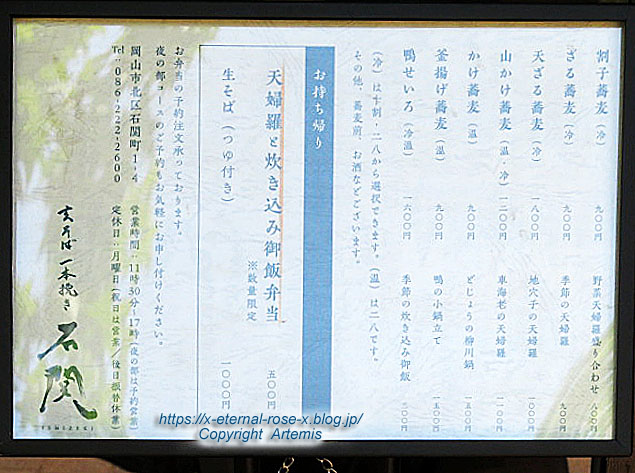 割子蕎麦(冷) 九〇〇円
ざる蕎麦(冷) 九〇〇円
天ざる蕎麦(冷) 一八〇〇円
山かけ蕎麦(温・冷) 一二〇〇円
かけ蕎麦(温) 九〇〇円
釜揚げ蕎麦(温) 九〇〇円
鴨せいろ(冷温) 一六〇〇円
野菜天婦羅盛り合わせ 八〇〇円
季節の天婦羅 九〇〇円
地穴子の天婦羅
車海老の天婦羅
どじょうの柳川鍋
鴨の小鍋立て 一五〇〇円
季節の炊き込み御飯
(冷)は十割・二八から選択できます。(温)は二八です。
その他、蕎麦前、お酒などございます。
お持ち帰り
天婦羅と炊き込み御飯弁当 ※数量限定
生そば(つゆ付き) 一〇〇〇円
お弁当の予約注文承っております。
夜の部コースのご予約もお気軽にお申し付けください。
岡山市北区石関町1-4
Tel:086-222-2600
営業時間:11時30分~17時(夜の部は予約営業)
定休日:月曜日(祝日は営業/後日振替休業)
一本挽き
石関
ISHIZEKI
https://x-eternal-rose-x.blog.jp/
Copyright Artemis